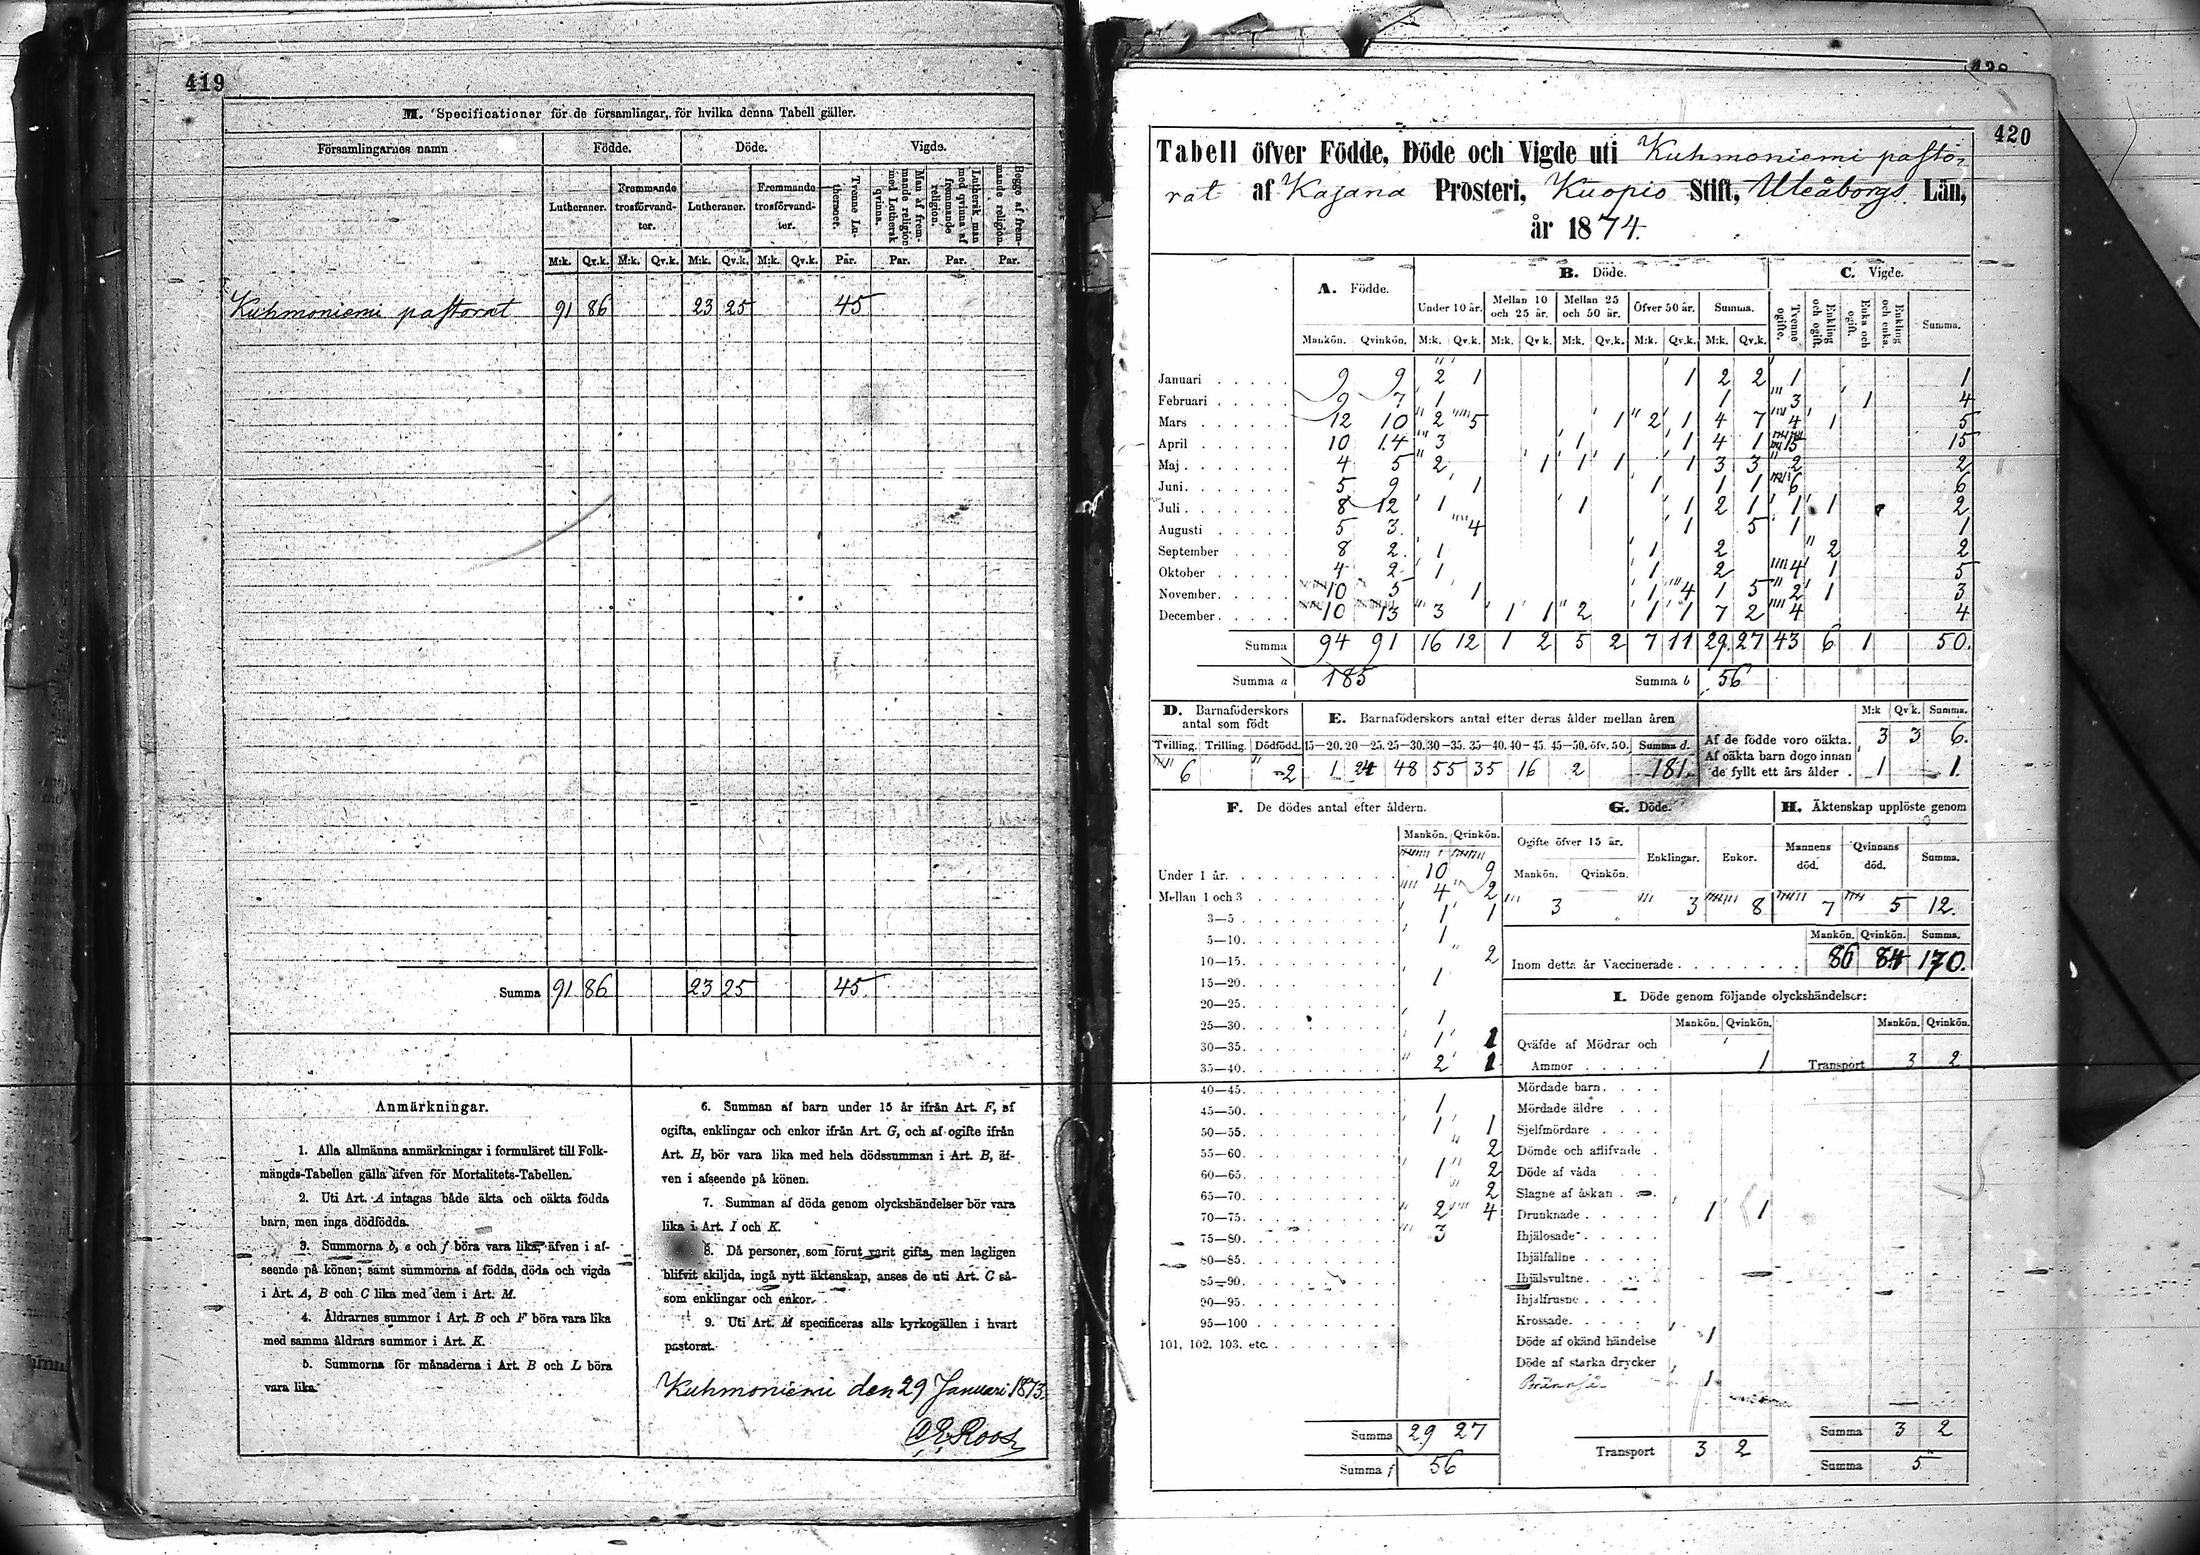 419
M. Specificationer för de församlingar, för hvilka denna Tabell gäller.
Församlingarnes namn
Födde. Döde. Vigde.
Lutheraner. Fremmande trosförvandter. Lutheraner. Fremmande trosförvandter. Tvenne Lutheraner. Man af fremmande religion med Luthersk qvinna. Luthersk man med qvinna af fremmande religion. Begge af fremmande religion.
M:k. Qv.k. M:k. Qv.k. M:k. Qv.k. M:k. Qv.k. Par. Par. Par. Par.
Kuhmoniemi pastorat 91 86 23 25 45
Summa 91 86 23 25 45
Anmärkningar.
1. Alla allmänna anmärkningar i formuläret till Folk-
mängds-Tabellen gälla äfven för Mortalitets-Tabellen.
2. Uti Art. A intagas både äkta och oäkta födda
barn, men inga dödfödda.
3. Summorna b, e och f böra vara lika, äfven i af-
seende på könen; samt summorna af födda, döda och vigda
i Art. A, B och C lika med dem i Art. M.
4. Åldrarnes summor i Art. B och F böra vara lika
med samma åldrars summor i Art. K.
5. Summorna för månaderna i Art. B och L böra
vara lika.
6. Summan af barn under 15 år ifrån Art. F, af
ogifta, enklingar och enkor ifrån Art. G, och af ogifte ifrån
Art. H, bör vara lika med hela dödssumman i Art. B, äf-
ven i afseende på könen.
7. Summan af döda genom olyckshändelser bör vara
lika i Art. I och K.
8. Då personer, som förut varit gifta, men lagligen
blifvit skiljda, ingå nytt äktenskap, anses de uti Art. C så-
som enklingar och enkor.
9. Uti Art. M specificeras alla kyrkogällen i hvart
pastorat.
Kuhmoniemi den 29 Januari 1873.
Roos
420
Tabell öfver Födde, Döde och Vigde uti Kuhmoniemi pasto-
rat af Kajana Prosteri, Kuopio Stift, Uleåborgs Län,
år 1874.
A. Födde. B. Döde. C. Vigde.
Under 10 år. Mellan 10 och 25 år. Mellan 25 och 50 år. Öfver 50 år. Summa. Tvenne ogifte. Enkling och ogift. Enka och ogift. Enkling och enka. Summa.
Mankön. Qvinkön. M:k. Qv.k. M:k. Qv.k. M:k. Qv.k. M:k. Qv.k. M:k. Qv.k.
Januari 9 9 2 1 1 2 2 1 1
Februari 9 7 1 1 3 1 4
Mars 12 10 2 5 1 2 1 4 7 4 1 5
April 10 14 3 1 1 4 1 15 15
Maj 4 5 2 1 1 1 1 3 3 2 2
Juni 5 9 1 1 1 1 6 6
Juli 8 12 1 1 1 2 1 1 1 2
Augusti 5 3 4 1 5 1 1
September 8 2 1 1 2 2 2
Oktober 4 2 1 1 2 4 1 5
November 10 5 1 1 4 1 5 2 1 3
December 10 13 3 1 1 2 1 1 7 2 4 4
Summa 94 91 16 12 1 2 5 2 7 11 29 27 43 6 1 50.
Summa a 185 Summa b 56
D. Barnaföderskors antal som födt
E. Barnaföderskors antal efter deras ålder mellan åren
Tvilling. Trilling. Dödfödd. 15—20. 20—25. 25—30. 30—35. 35—40. 40—45. 45—50. öfv. 50. Summa d.
6 2 1 24 48 55 35 16 2 181.
M:k Qv.k. Summa.
Af de födde voro oäkta. 3 3 6.
Af oäkta barn dogo innan
de fyllt ett års ålder . 1 1.
F. De dödes antal efter åldern.
Mankön. Qvinkön.
Under 1 år. 10 9
Mellan 1 och 3 4 2
3—5 1 1
5—10. 1
10—15. 2
15—20. 1
20—25.
25—30. 1
30—35. 1 1
35—40. 2 1
40—45.
45—50. 1
50—55. 1 1
55—60. 2
60—65. 1 2
65—70. 2
70—75. 2 4
75—80. 3
80—85.
85—90.
90—95.
95—100
101, 102, 103, etc.
Summa 29 27
Summa f 56
G. Döde.
Ogifte öfver 15 år. Enklingar. Enkor.
Mankön. Qvinkön.
3 3 8
H. Äktenskap upplöste genom
Mannens död. Qvinnans död. Summa.
7 5 12.
Mankön. Qvinkön. Summa.
Inom detta år Vaccinerade 86 84 170.
I. Döde genom följande olyckshändelser:
Mankön. Qvinkön. Mankön. Qvinkön.
Qväfde af Mödrar och
Ammor 1 Transport 3 2
Mördade barn.
Mördade äldre
Sjelfmördare
Dömde och aflifvade
Döde af våda
Slagne af åskan
Drunknade 1 1
Ihjälosade
Ihjälfallne
Ihjälsvultne.
Ihjälfrusne
Krossade.
Döde af okänd händelse 1
Döde af starka drycker
1
Transport 3 2
Summa 3 2
Summa 5